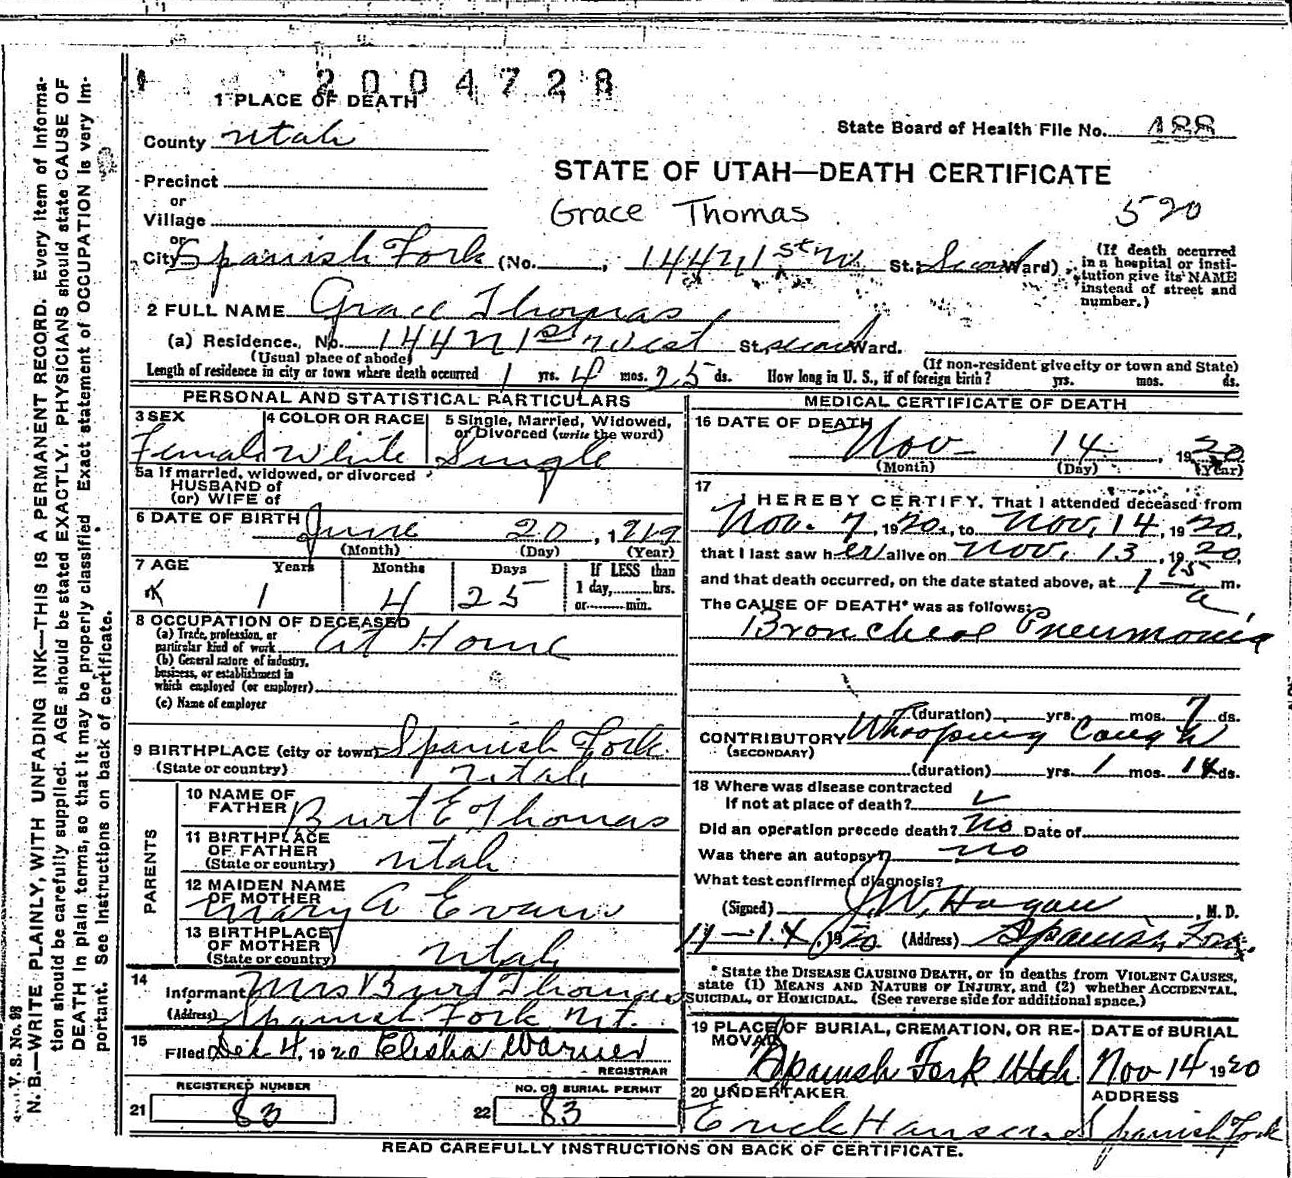 2004728
1 PLACE OF DEATH
County Utah
State Board of Health File No. 488
Precinct
or
Village
or
STATE OF UTAH—DEATH CERTIFICATE
Grace Thomas 520
City Spanish Fork (No. , 144 N 1st W St.; Second Ward)
(If death occurred
in a hospital or insti-
tution give its NAME
instead of street and
number.)
2 FULL NAME Grace Thomas
(a) Residence, No. 144 N 1st West St., second Ward.
(Usual place of abode)
(If non-resident give city or town and State)
Length of residence in city or town where death occurred 1 yrs. 4 mos. 25 ds. How long in U. S., if of foreign birth? yrs. mos. ds.
PERSONAL AND STATISTICAL PARTICULARS
3 SEX 4 COLOR OR RACE 5 Single, Married, Widowed,
or Divorced (write the word)
Female White Single
5a If married, widowed, or divorced
HUSBAND of
(or) WIFE of
6 DATE OF BIRTH June 20, 1919
(Month) (Day) (Year)
7 AGE Years Months Days If LESS than
1 day, hrs.
or min.
1 4 25
8 OCCUPATION OF DECEASED
(a) Trade, profession, or
particular kind of work At Home
(b) General nature of industry,
business, or establishment in
which employed (or employer)
(c) Name of employer
9 BIRTHPLACE (city or town) Spanish Fork
(State or country) Utah
PARENTS
10 NAME OF
FATHER Burt E Thomas
11 BIRTHPLACE
OF FATHER
(State or country) Utah
12 MAIDEN NAME
OF MOTHER
Mary A Evans
13 BIRTHPLACE
OF MOTHER
(State or country) Utah
14
Informant Mrs Burt Thomas
(Address) Spanish Fork Ut.
15
Filed Dec 4, 1920 Elisha Warner
REGISTRAR
REGISTERED NUMBER NO. OF BURIAL PERMIT
21 83 22 83
MEDICAL CERTIFICATE OF DEATH
16 DATE OF DEATH
Nov- 14, 1920
(Month) (Day) (Year)
17
I HEREBY CERTIFY, That I attended deceased from
Nov. 7, 1920, to Nov, 14, 1920,
that I last saw her alive on Nov. 13, 1920,
and that death occurred, on the date stated above, at 1 15 a m.
The CAUSE OF DEATH* was as follows:
Broncheal Pneumonia
(duration) yrs. mos. 7 ds.
CONTRIBUTORY Whooping Cough
(SECONDARY)
(duration) yrs. 1 mos. 14 ds.
18 Where was disease contracted
if not at place of death? ✓
Did an operation precede death? No Date of
Was there an autopsy? no
What test confirmed diagnosis?
(Signed) J.W. Hagan, M. D.
11-14, 1920 (Address) Spanish Fork.
* State the DISEASE CAUSING DEATH, or in deaths from VIOLENT CAUSES,
state (1) MEANS AND NATURE OF INJURY, and (2) whether ACCIDENTAL,
SUICIDAL, or HOMICIDAL. (See reverse side for additional space.)
19 PLACE OF BURIAL, CREMATION, OR RE-
MOVAL
DATE of BURIAL
Spanish Fork Utah Nov 14 1920
20 UNDERTAKER ADDRESS
Erick Hansen Spanish Fork
READ CAREFULLY INSTRUCTIONS ON BACK OF CERTIFICATE.
V. S. No. 98
N. B.—WRITE PLAINLY, WITH UNFADING INK—THIS IS A PERMANENT RECORD. Every item of informa-
tion should be carefully supplied. AGE should be stated EXACTLY. PHYSICIANS should state CAUSE OF
DEATH in plain terms, so that it may be properly classified. Exact statement of OCCUPATION is very im-
portant. See instructions on back of certificate.